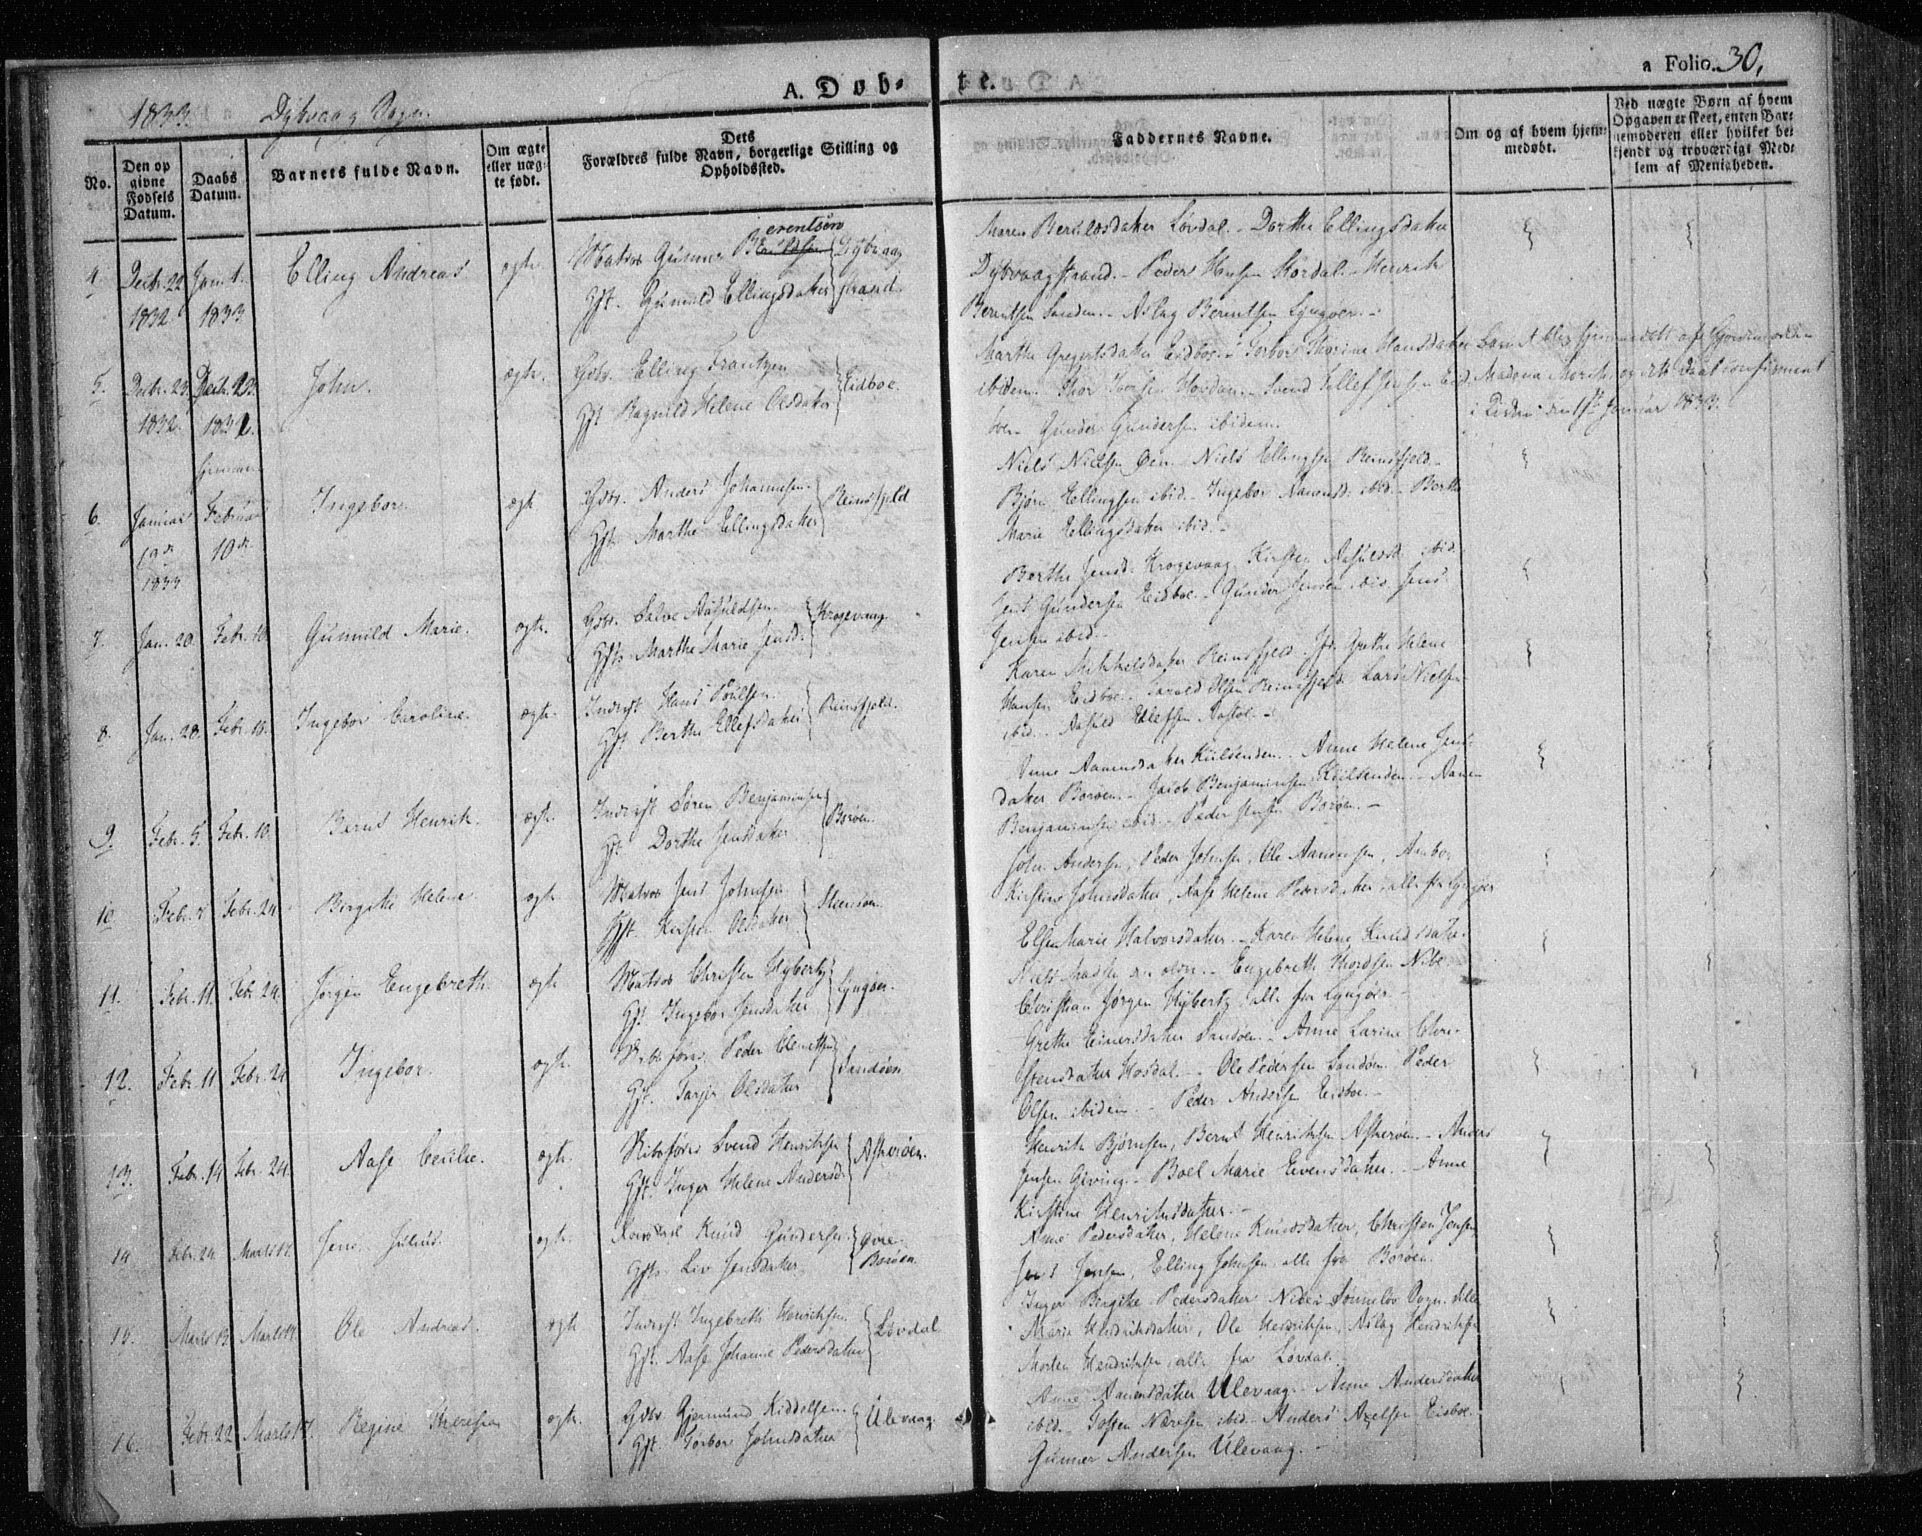 1833. Dybvaag Sogn.
A. Døb- te.
a Folio. 30,
No.
Den op
givne
Fødsels
Datum.
Daabs
Datum.
Barnets fulde Navn.
Om ægte
eller uæg-
te født.
Dets
Forældres fulde Navn, borgerlige Stilling og
Opholdssted.
Faddernes Navne.
Om og af hvem hjem-
medøbt.
Ved uægte Børn af hvem
Opgaven er skeet, enten Bar-
nemoderen eller hvilket be-
kjendt og troværdigt Med-
lem af Menigheden.
4. Decbr. 22 1832 Janu. 1. 1833 Elling Andreas ægte
Matros Gunner Berentsen
Gft. Gunnild Ellingsdatter
Dybvaag
strand.
Maren Bertelsdatter Løvdal. - Dorthe Ellingsdatter
Dybvaagstrand. - Peder Hansen Hordal. - Henrik
Berentsen Sanden. - Aslag Berentsen Lyngøer. -
5. Decbr. 23. 1832. Decbr. 23. 1832. John. ægte.
Gdbr. Elling Frantzen
Gft. Ragnild Helene Olsdatter
Eidboe.
Marthe Gregersdatter Eidboe. - Torbor Thorine Hansdatter
ibidem. Thor Iversen Hovdan. - Svend Ellefsen Eid-
boe - Gunder Gundersen ibidem.
Barnet blev hjemmedøbt af Gjordemoder
Madame Mørch, og dets Daab confirmeret
i Kirken den 1ste Januar 1833.
6. Januar 12te 1833 Februar 10de Ingebor. ægte
Gdbr. Anders Johannesen.
Gft. Marthe Ellingsdatter
Reinsfjeld
Niels Nielsen Øen. - Niels Ellingsen Reinsfjeld -
Bjørn Ellingsen ibid. - Ingebor Aanonsd. ibid. - Berthe
Marie Ellingsdatter ibid. -
7. Jan. 20. Febr. 10 Gunnild Marie. ægte.
Gdbr. Salve Aasuldsen.
Gft. Marthe Marie Jensd.
Krogevaag.
Berthe Jensd. Krogevaag. Kirsten Aasulsd. ibid.
Jens Gundersen Eidboe. - Gunder Jensen ibid. Jens
Jensen ibid. -
8. Jan. 28. Febr. 10. Ingebor Caroline. ægte.
Inderst Hans Poulsen.
Gft. Berthe Ellefsdatter
Reinsfjeld.
Karen Mikkelsdatter Reinsfjeld. Jfr. Grethe Helene
Hansen Eidboe. - Tarald Olsen Reinsfjeld. Lars Nielsen
ibid. - Aasuld Ellefsen Aastøl. -
9. Febr. 5. Febr. 10. Bernt Henrik. ægte.
Inderst Søren Benjaminsen
Gft. Dorthe Jensdatter
Borøen
Anne Aanonsdatter Kiilsenden. - Anne Helene Jens-
datter Borøen. - Jacob Benjaminsen Kiilsenden - Aanon
Benjaminsen ibid. - Peder Jensen Borøen. -
10 Febr. Febr. 24. Birgite Helene. ægte.
Matros Jens Johnsen.
Gft. Kirsten Olsdatter
Steensøen
John Andersen, Peder Johnsen, Ole Aanonsen,
Kirstine Johnsdatter, Aase Helene Pedersdatter, alle fra Lyngøer
11. Febr. 11. Febr. 24. Jørgen Engebreth. ægte
Matros Christen Hybertz
Gft. Ingebor Jensdatter
Lyngøer.
Elsen Marie Halvorsdatter. - Karen Helene Knudsdatter.
Engebreth Thordsen Nibe
Christian Jørgen Hybertz, alle fra Lyngøer -
12. Febr. 11 Febr. 24 Ingebor. ægte.
Peder
Gft. Tarjer Olsdatter
Sandøen
Grethe Einersdatter Sandøen. - Anne Larine Chri-
stensdatter Hosdal. - Ole Pedersen Sandøen. Peder
Olsen ibidem. - Peder Andersen Eidboe. -
13. Febr. 14 Febr. 24. Aase Cecilie. ægte.
Svend Henriksen
Gft. Inger Helene Andersd.
Askerøen.
Henrik Bjørnsen, Bernt Henriksen Askerøen. - Anders
Jensen Giving. - Boel Marie Evensdatter. - Anne
Kirstine Henriksdatter. -
14 Febr. 24 Marts 17. Jens Julius. ægte.
Knud Gundersen
Gft. Liv Jensdatter
Øvre
Borøen
Anne Pedersdatter, Helene Knudsdatter, Christen Jensen,
Jens Jensen, Elling Johnsen, alle fra Borøen.
15. Marts 13. Marts 17. Ole Andreas. ægte
Inderst Ingebreth Henriksen
Gft. Aase Johanne Pedersdatter
Løvdal
Inger Birgithe Pedersdatter Sogn.
Marie Henriksdatter, Ole Henriksen, Aslag Hendriksen
Morten Hendriksen, alle fra Løvdal.
16. Febr. 22 Marts 17. Regine Theresia ægte.
Gdbr. Gjermund Kiddelsen.
Gft. Torbor Johnsdatter
Ulevaag.
Anne Aanonsdatter Ulevaag. Anne Andersdatter
ibid. - Tosten ibid - Anders Axelsen Eidboe.
Gunner Andersen Ulevaag. -